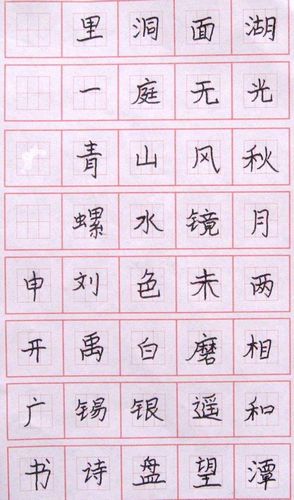 湖光秋月两相和潭
面无风镜未磨遥望
洞庭山水色白银盘
里一青螺刘禹锡诗
申开广书